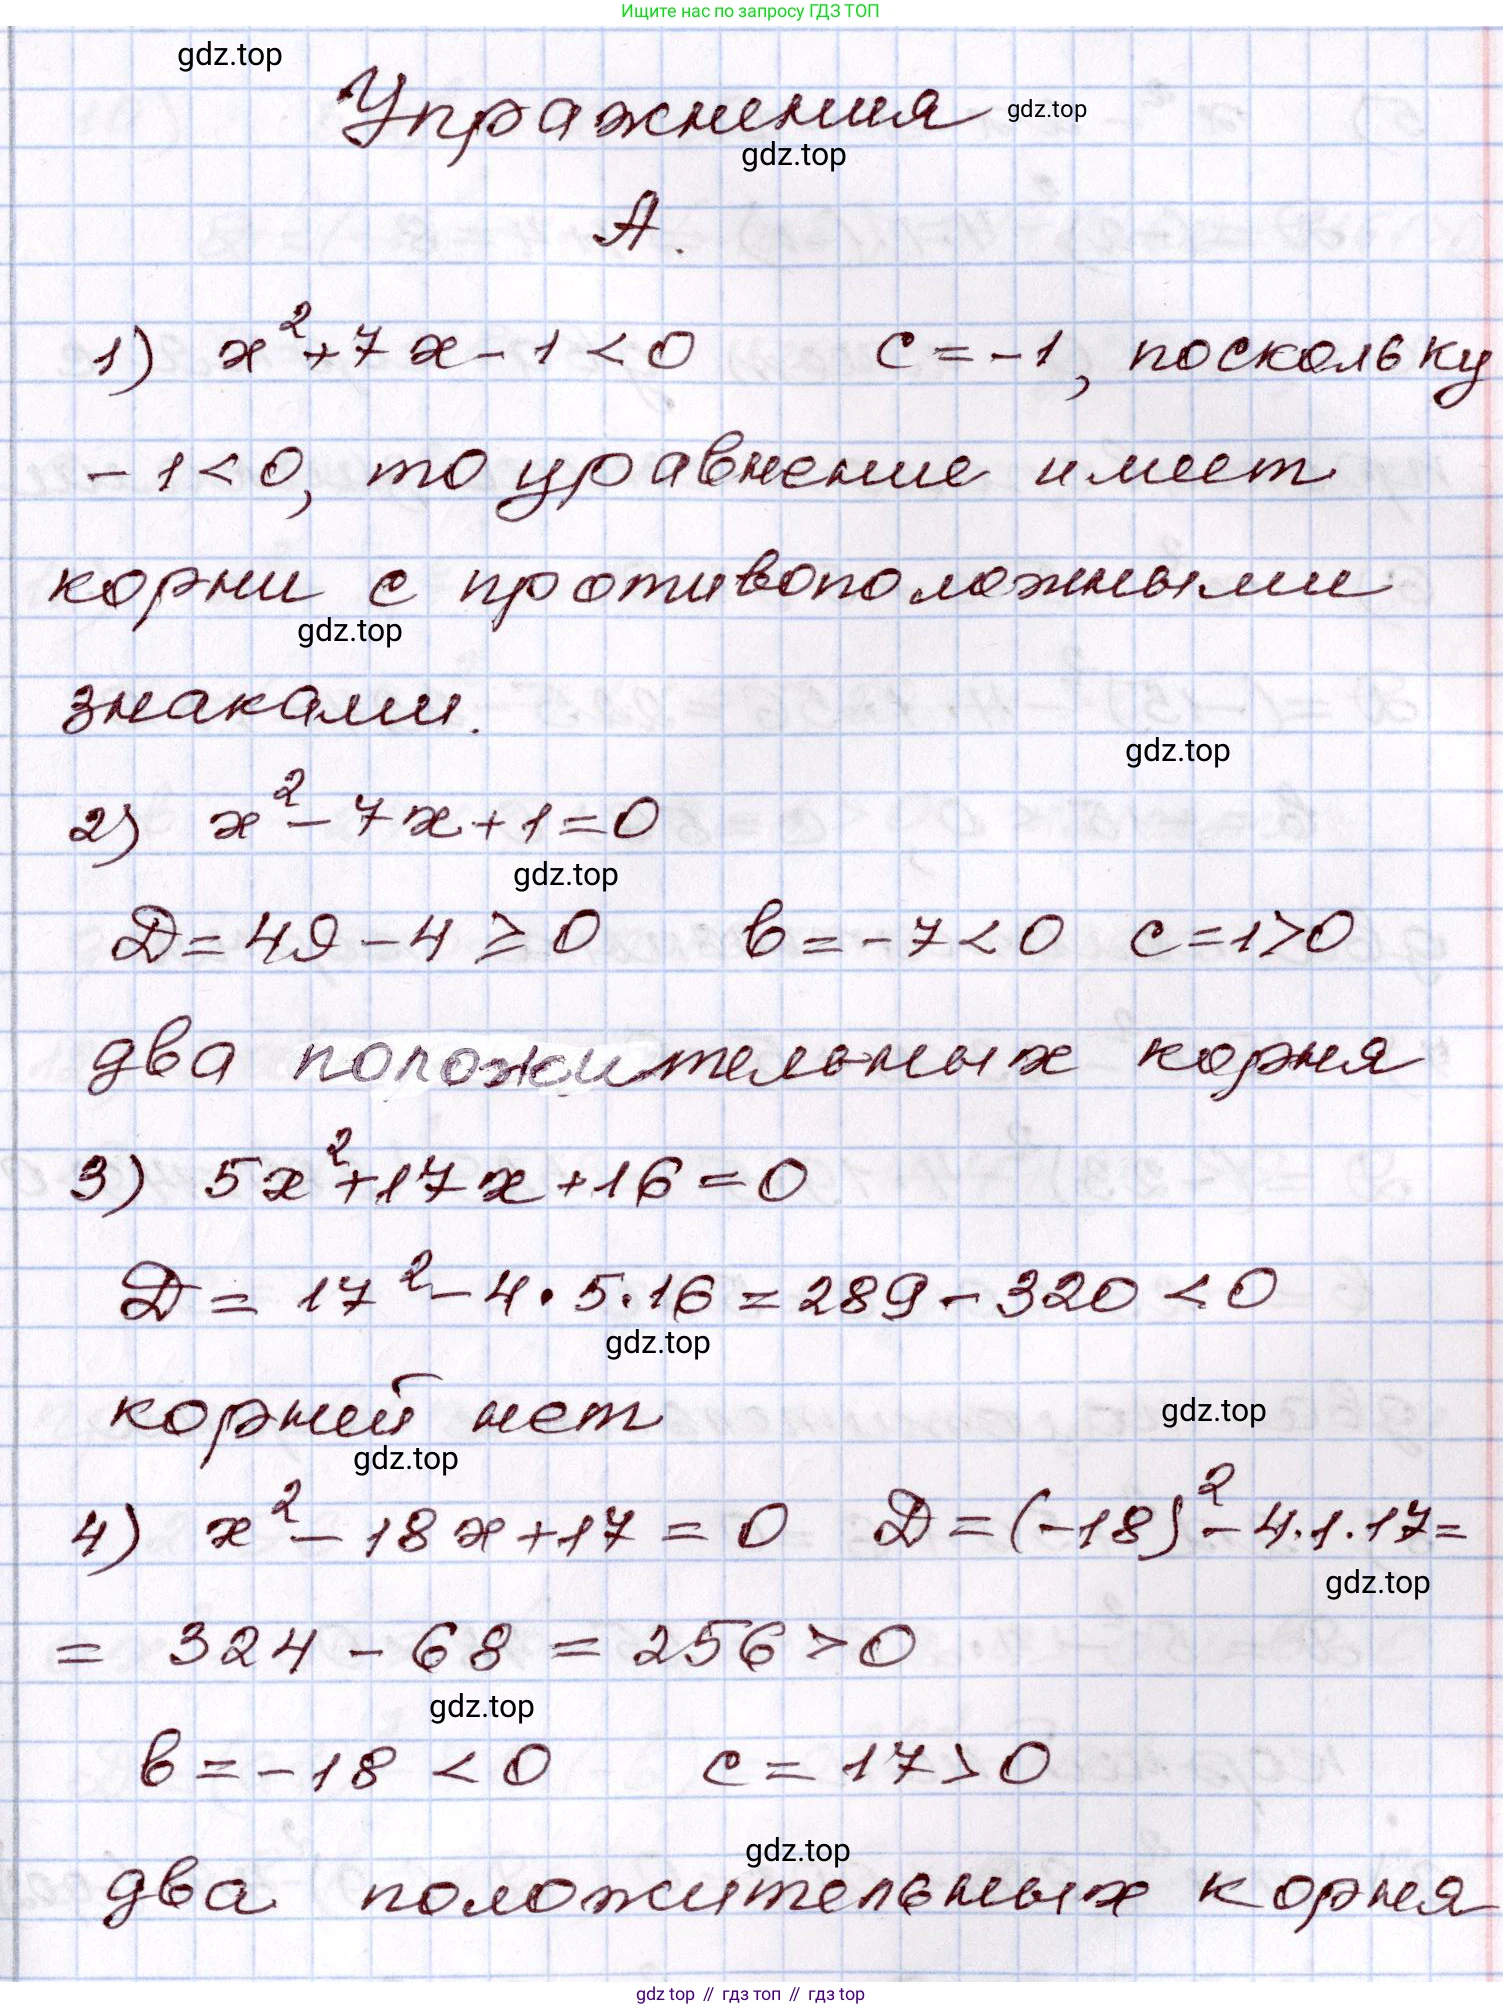 Ищите нас по запросу ГДЗ ТОП
gdz.top
Упражнения
gdz.top
gdz.top
А.
1) x²+7x-1<0 c=-1, поскольку
-1<0, то уравнение имеет
корни с противоположными
gdz.top
знаками.
gdz.top
2) x²-7x+1=0
gdz.top
D=49-4≥0 b=-7<0 c=1>0
два положительных корня
3) 5x²+17x+16=0
D=17²-4·5·16=289-320<0
gdz.top
корней нет
gdz.top
gdz.top
4) x²-18x+17=0 D=(-18)²-4·1·17=
gdz.top
=324-68=256>0
gdz.top
b=-18<0 c=17>0
gdz.top
два положительных корня
gdz.top // гдз топ // гдз top